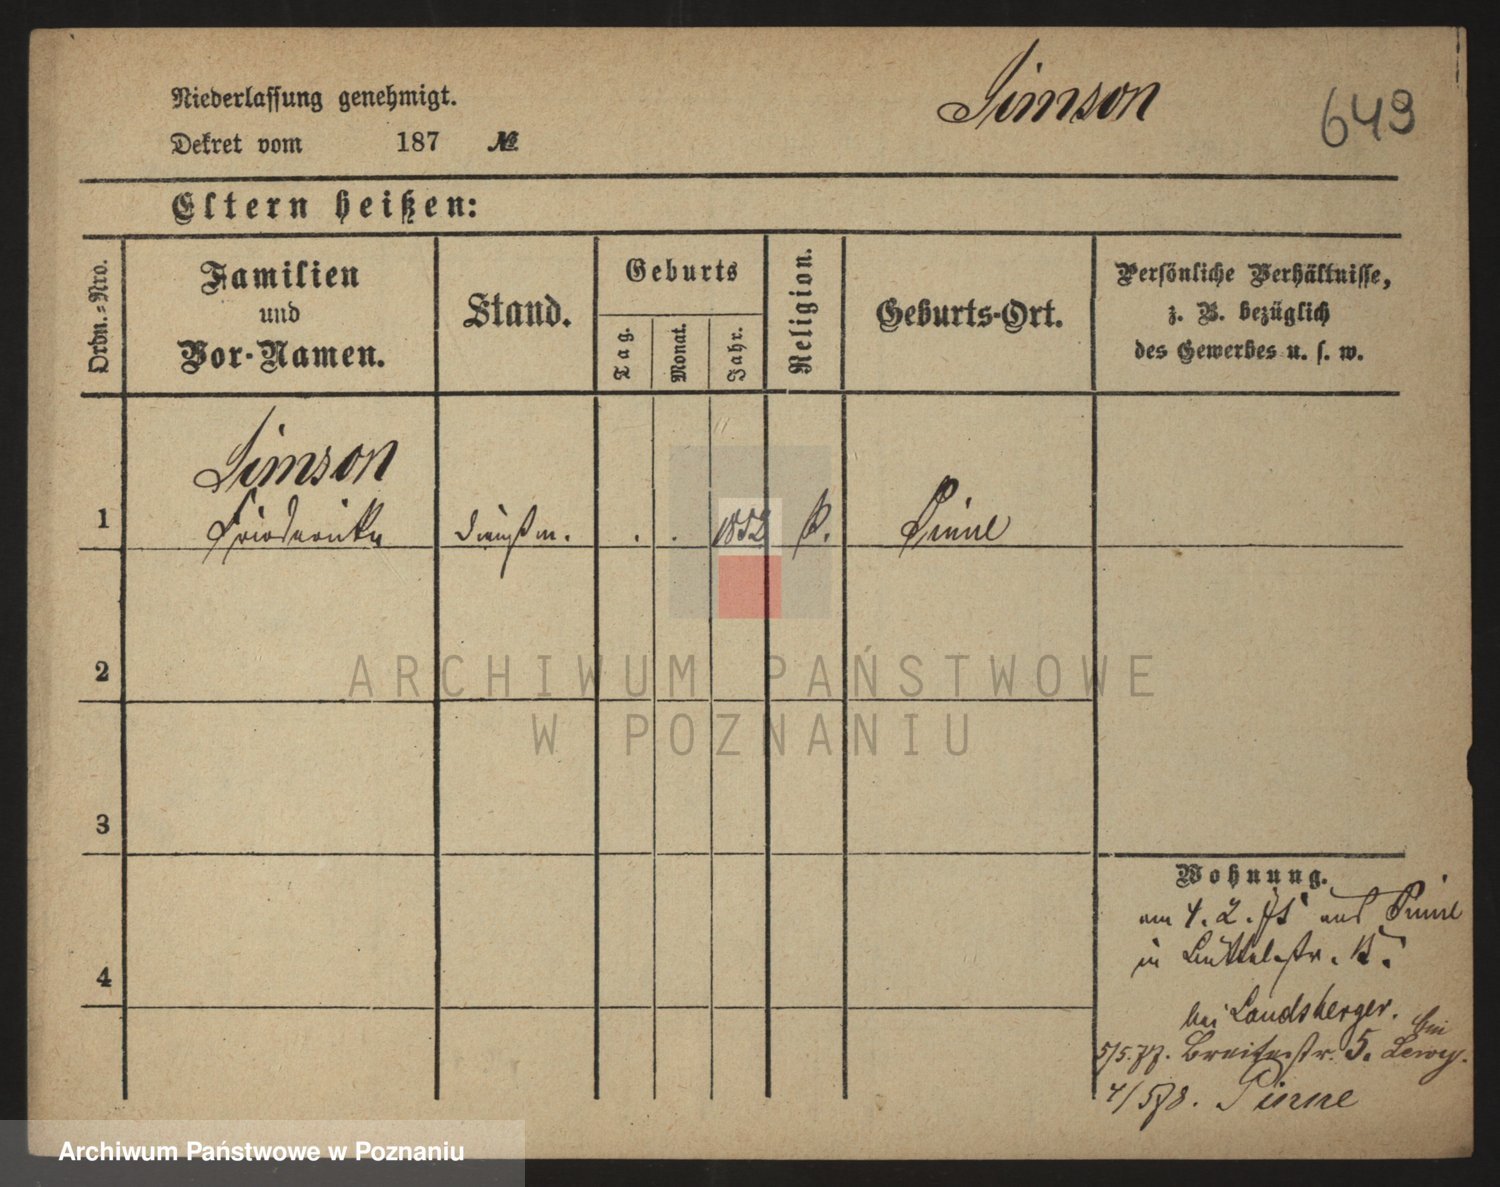 Simson
649
Niederlassung genehmigt.
Dekret vom 187 №
Eltern heißen:
Ordn.-Nro.
Familien
und
Vor-Namen.
Stand.
Geburts
Tag.
Monat.
Jahr.
Religion.
Geburts-Ort.
Persönliche Verhältnisse,
z. B. bezüglich
des Gewerbes u. s. w.
Simson
1 Friederike Dienstm. . . 1852 Pinne
2
ARCHIWUM PAŃSTWOWE
W POZNANIU
3
Wohnung.
am 4. 2. 75 aus Pinne
in
4
bei Landsberger.
5/5. 77. Breitestr. 5. bei Lewy.
4/5 78. Pinne
Archiwum Państwowe w Poznaniu